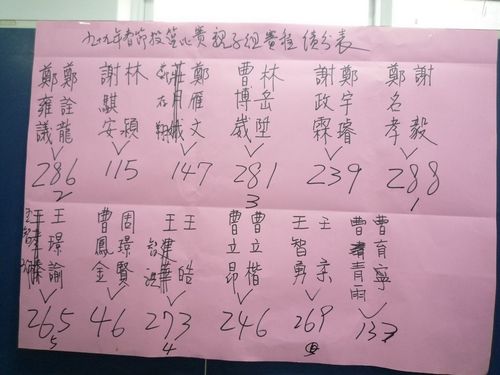 九十九年春節投籃比賽親子組賽程績分表
鄭雍議
鄭詮龍
286
2
謝騏安
林穎
115
莊月娥
鄭雁文
147
曹博崴
林岳陞
281
3
謝政霖
鄭宇璿
239
鄭名孝
謝毅
288
1
王璟諭
265
5
曹鳳金
周璟賢
46
王皓
273
4
曹立昂
曹立楷
246
王智勇
王宗
269
曹青雨
曹育寧
137